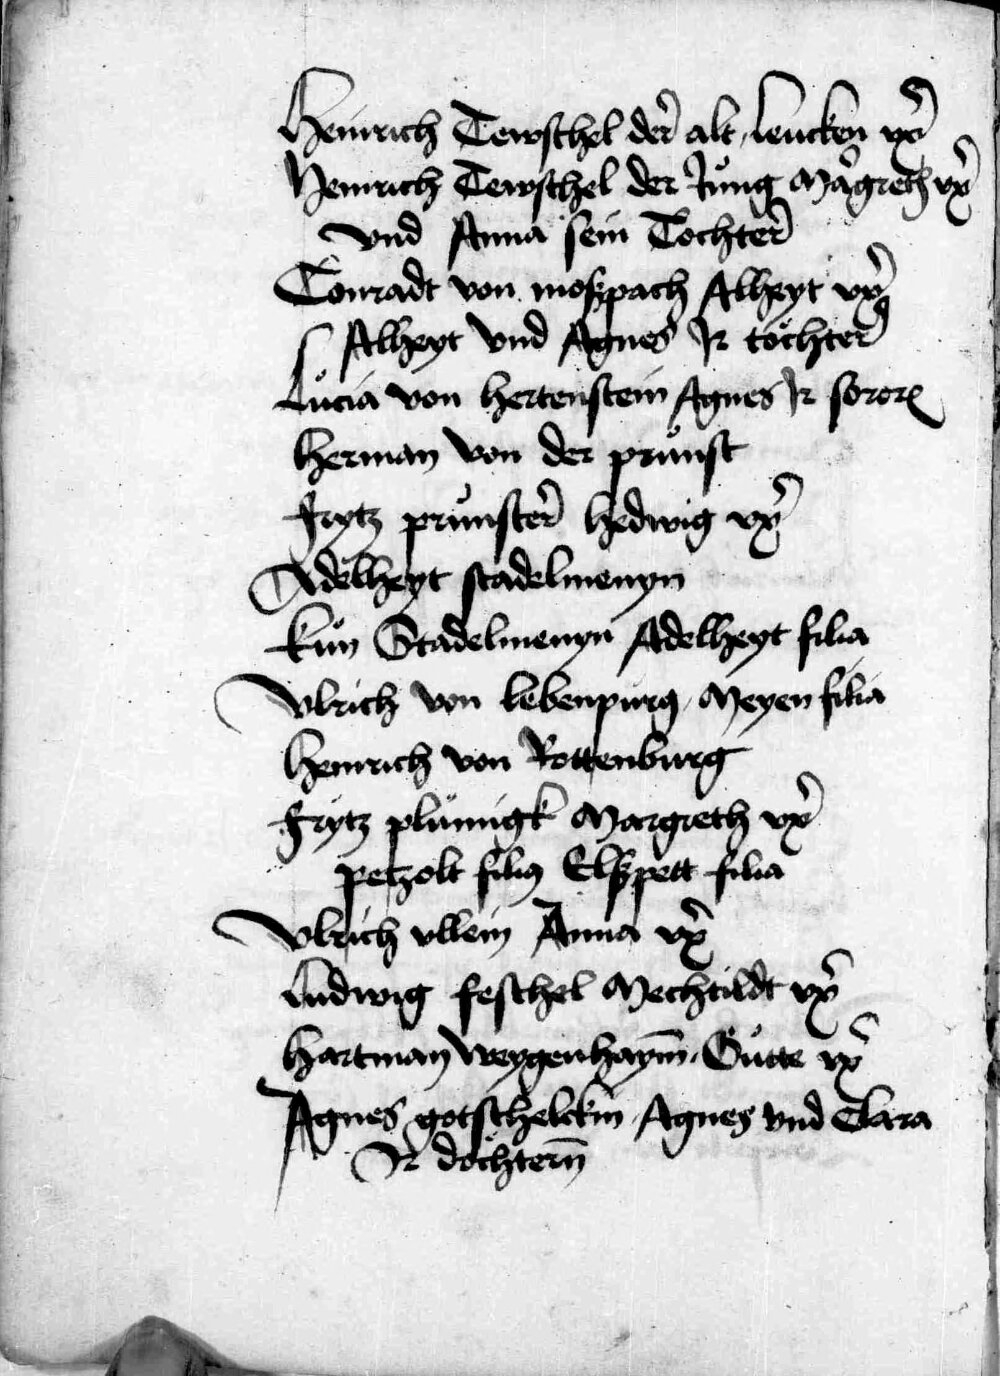 Heinrich Tewschel der alt, leucken vx̄
Heinrich Tewschel der Jůng Mārgreth vx̄
vnd Anna sein Tochter
Conradt von moszpach Alheyt vx̄
Alheyt vnd Agnes Ir töchter
Lůcia von hertenstein Agnes Ir soror
Herman von der průnst
Frytz průnster hedwig vx̄
Adelheyt stadelmenyn
Kůn Stadelmenyn Adelheyt filia
Vlrich von lebenpurg, Meyen filia
Heinrich von Rottenburg
Frytz plůmigk Margreth vx̄
petzolt filiꝰ Elszpett filia
Vlrich vllein Anna vx̄
Ludwig feschel Mechtildt vx̄
Hartman Weygenhaym̄, Gůtte vx̄
Agnes gotschelckin, Agnes vnd Clara
Ir döchtern̄